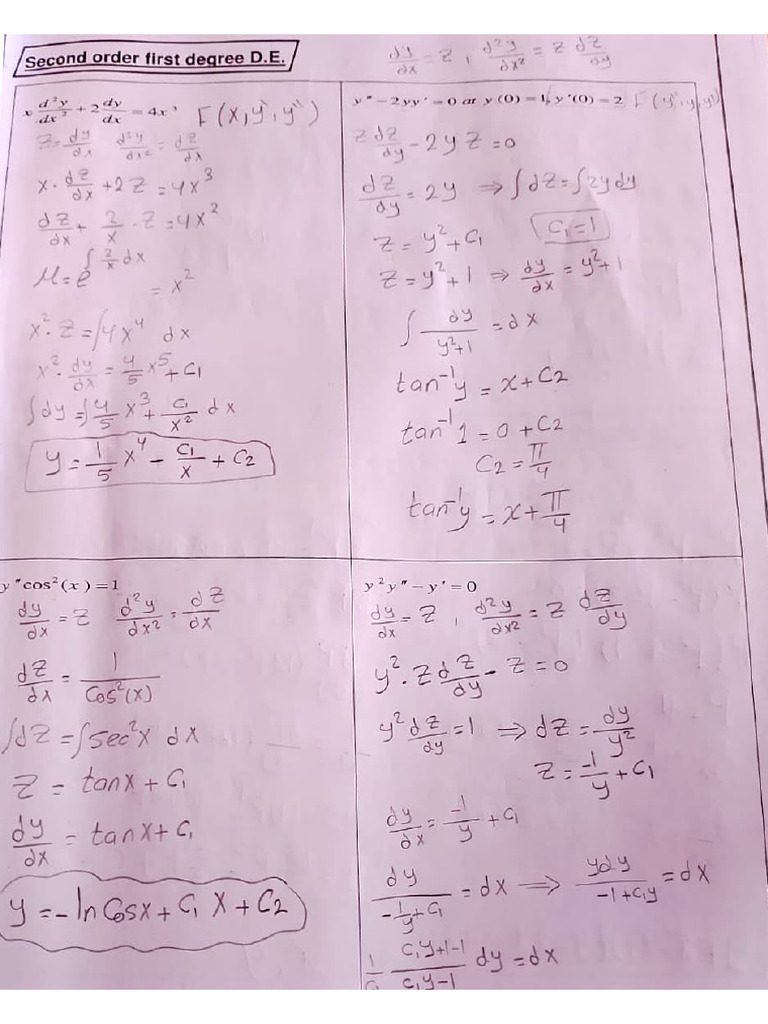 Second order first degree D.E.
dy/dx = z , d²y/dx² = z dz/dy
x d²y/dx² + 2 dy/dx = 4x³ F(x, y', y'')
z = dy/dx d²y/dx² = dz/dx
x · dz/dx + 2z = 4x³
dz/dx + 2/x · z = 4x²
M = e^∫ 2/x dx = x²
x² · z = ∫4x⁴ dx
x² · dy/dx = 4/5 x⁵ + C₁
∫dy = ∫ 4/5 x³ + C₁/x² dx
y = 1/5 x⁴ - C₁/x + C₂
y'' - 2yy' = 0 at y(0) = 1, y'(0) = 2
z dz/dy - 2y z = 0
dz/dy = 2y ⇒ ∫dz = ∫2y dy
z = y² + C₁ C₁ = 1
z = y² + 1 ⇒ dy/dx = y² + 1
∫ dy/(y²+1) = dx
tan⁻¹y = x + C₂
tan⁻¹1 = 0 + C₂
C₂ = π/4
tan⁻¹y = x + π/4
y'' cos²(x) = 1
dy/dx = z d²y/dx² = dz/dx
dz/dx = 1/Cos²(x)
∫dz = ∫sec²x dx
z = tanx + C₁
dy/dx = tanx + C₁
y = -ln Cosx + C₁ x + C₂
y² y'' - y' = 0
dy/dx = z , d²y/dx² = z dz/dy
y² · z dz/dy - z = 0
y² dz/dy = 1 ⇒ dz = dy/y²
z = -1/y + C₁
dy/dx = -1/y + C₁
dy/(-1/y + C₁) = dx ⇒ ydy/(-1+C₁y) = dx
(C₁y+1-1)/(C₁y-1) dy = dx